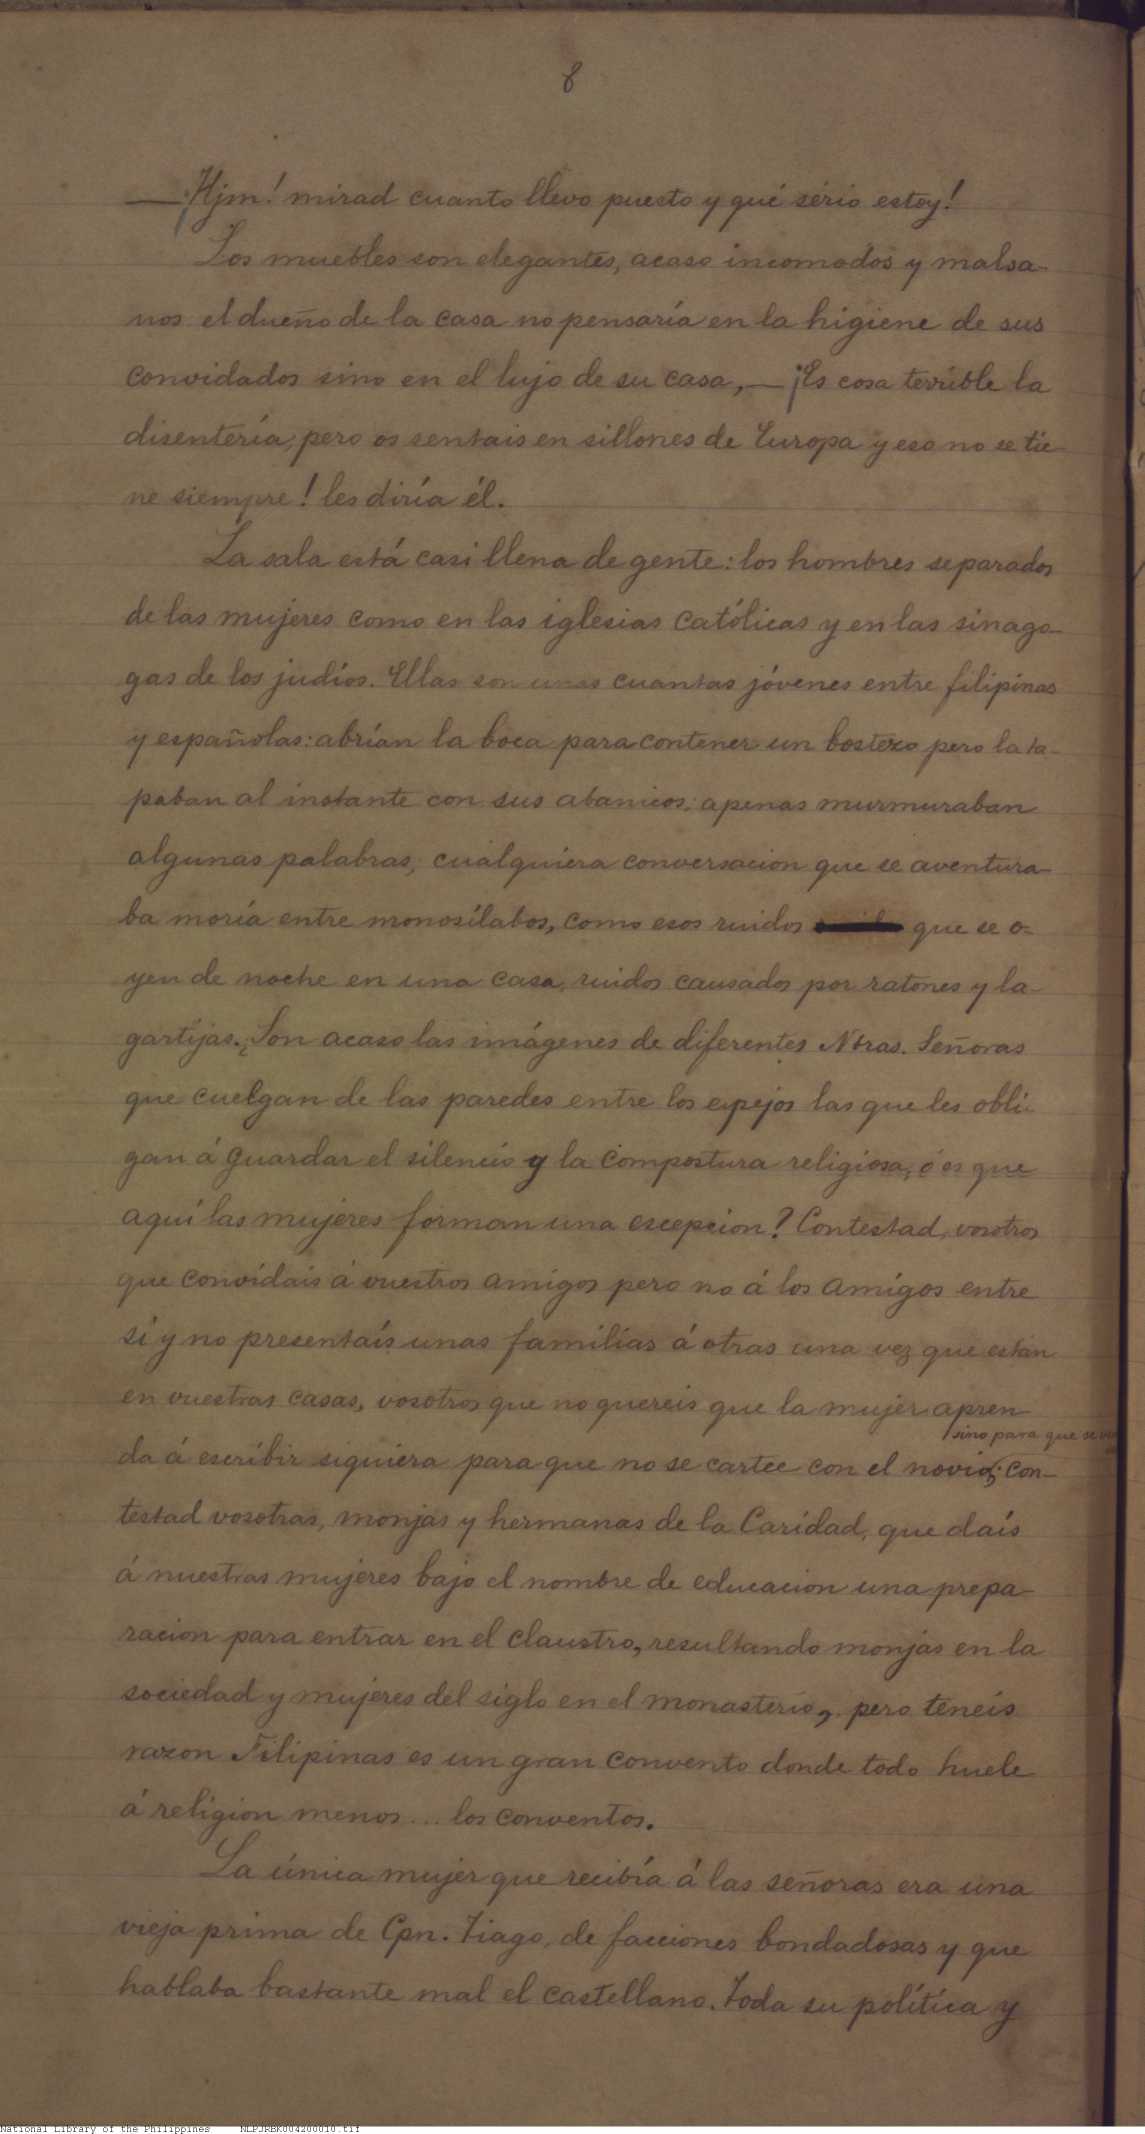 8
—¡Hjm! mirad cuanto llevo puesto y qué sério estoy!
Los muebles son elegantes, acaso incomodos y malsa-
nos: el dueño de la casa no pensaría en la higiene de sus
convidados sino en el lujo de su casa,—¡Es cosa terrible la
disentería, pero os sentais en sillones de Europa y eso no se tie-
ne siempre! les diría él.
La sala está casi llena de gente: los hombres separados
de las mujeres como en las iglesias católicas y en las sinago-
gas de los judíos. Ellas son unas cuantas jóvenes entre filipinas
y españolas: abrían la boca para contener un bostezo pero la ta-
paban al instante con sus abanicos; apenas murmuraban
algunas palabras; cualquiera conversacion que se aventura-
ba moría entre monosílabos, como esos ruidos que se o-
yen de noche en una casa, ruidos causados por ratones y la-
gartijas. ¿Son acaso las imágenes de diferentes Ntras. Señoras
que cuelgan de las paredes entre los espejos las que les obli-
gan á guardar el silencio y la compostura religiosa, ó es que
aquí las mujeres forman una escepcion? Contestad, vosotros
que convidais á vuestros amigos pero no á los amigos entre
sí y no presentaís unas familias á otras una vez que están
en vuestras casas, vosotros que no quereis que la mujer apren-
sino para que se
da á escribir siquiera para que no se cartee con el novio; con-
testad vosotras, monjas y hermanas de la Caridad, que daís
á nuestras mujeres bajo el nombre de educacion una prepa-
racion para entrar en el claustro, resultando monjas en la
sociedad y mujeres del siglo en el monasterio, pero teneis
razon Filipinas es un gran convento donde todo huele
á religion menos... los conventos.
La única mujer que recibía á las señoras era una
vieja prima de Cpn. Tiago, de facciones bondadosas y que
hablaba bastante mal el castellano. Toda su política y
National Library of the Philippines NLPJRBK004200010.tif